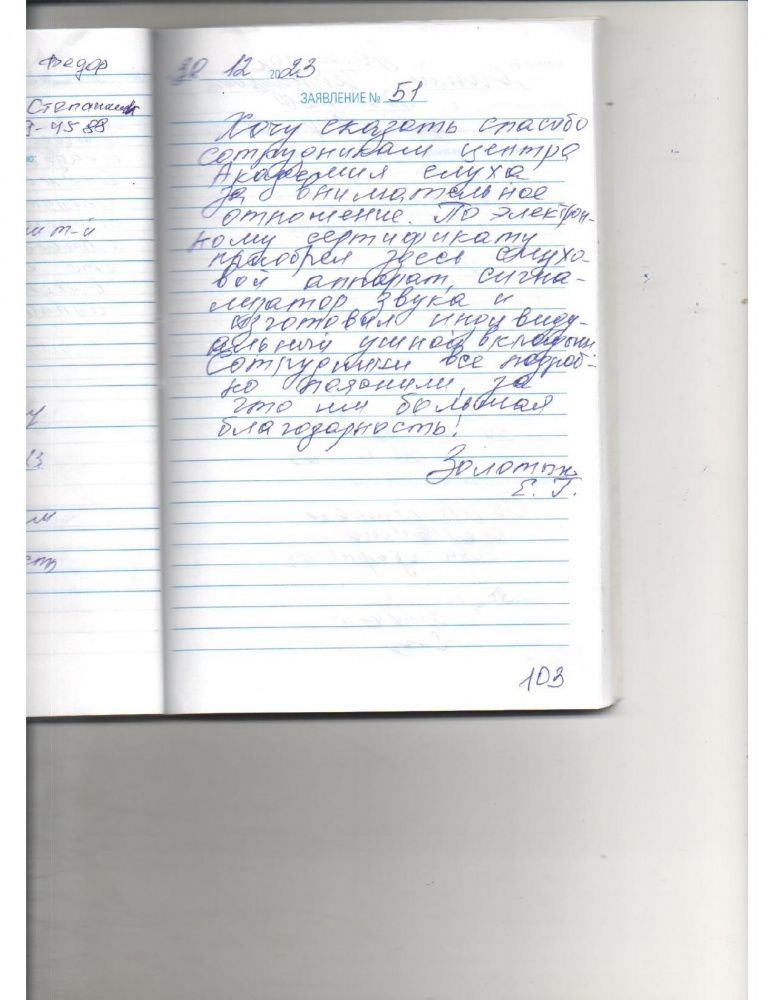 Федор
Степанович
30 12 2023
ЗАЯВЛЕНИЕ № 51
Хочу сказать спасибо
сотрудникам центра
Академия слуха
за внимательное
отношение. По электрон-
ному сертификату
приобрел здесь слухо-
вой аппарат, сигна-
лизатор звука и
изготовил индивиду-
альный ушной вкладыш
Сотрудники все подроб-
но пояснили, за
что им большая
благодарность!
Золотых
Е. Г.
103